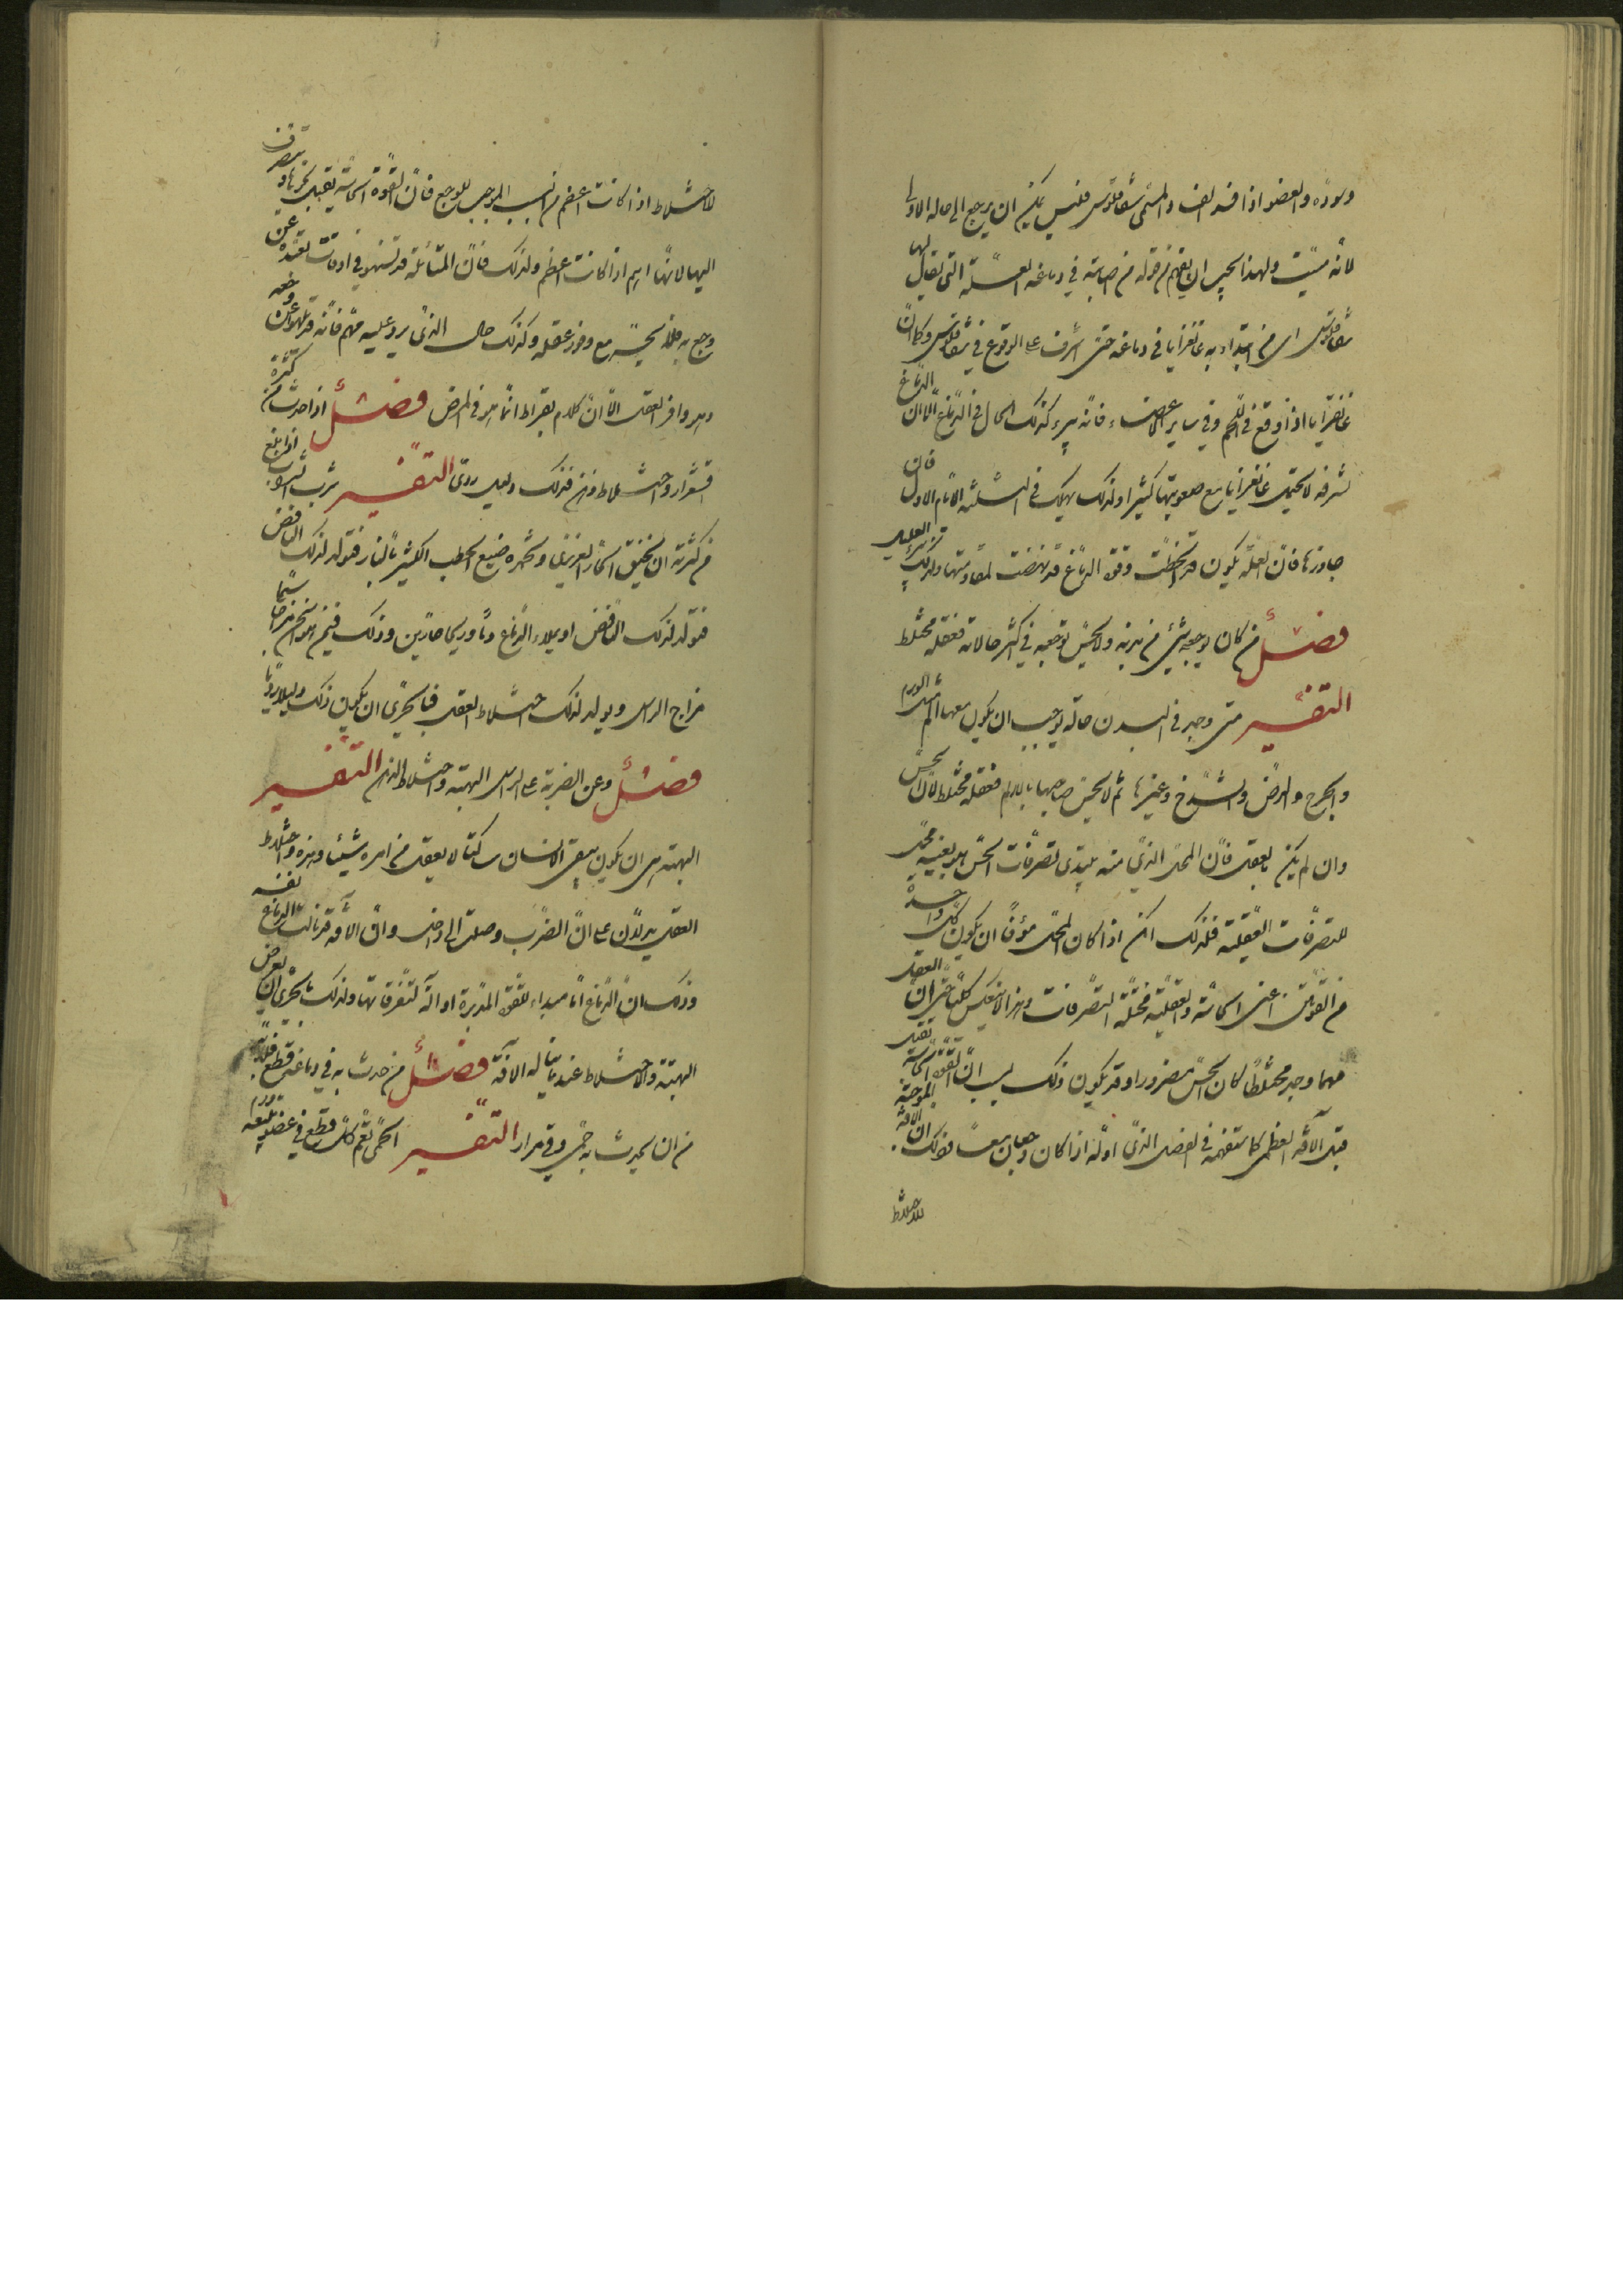 وسوده والعضو اذا فسد الفساد المسمى شقاقلوس فليس يمكن ان يرجع الى حاله الاولى
لانه ميت ولهذا يجب ان يفهم من قوله من اصابته في دماغه العلة التي يقال لها
شقاقلوس اى من ابتداء به غانغرايا في دماغه حتى اشرف على الوقوع في شقاقلوس وكما ان
غانغرايا اذا وقع في اللحم وفي ساير الاعضاء فانه يبرء كذلك الحال في الدماغ الا ان الدماغ
لشرفه لا يحتمل غانغرايا مع صعوبتها كثيرا ولذلك يهلك في الثلثة الايام الاول فان
جاوزها فان العلة يكون قد انحطت وقوة الدماغ قد نهضت لمقاومتها ولذلك يبرء العليل
فصل من كان يوجعه شئ من بدنه ولا يحس بوجعه في اكثر حالاته فعقله مختلط
التفسير متى وجد في البدن حالة يوجب ان يكون معها الم مثل الورم
والجرح والرض والشدخ وغيرها ثم لا يحس صاحبها بالالم فعقله مختلط لان الحس
وان لم يكن بالعقل فان المحل الذي منه يبتدى تصرفات الحس هو بعينه محل
للتصرفات العقلية فلذلك امكن اذا كان المحل مؤفا ان يكون كل واحدة
من القوتين اعنى الحاسة والعقلية مختلة التصرفات وهذا لا ينعكس كليا حتى ان العقل
مهما وجد مختلطا كان الحس متضرورا وقد يكون ذلك لسبب ان القوة الحاسة تقبل
قبل الآفة العظمى كما ستفهمه في الفصل الذي اوله اذا كان وجعان معا فذلك ان الآفة الموجبة
للاختلاط
للاختلاط اذا كانت اعظم من السبب الموجب للوجع فان القوة الحاسة يقبل نحوها وتتصرف
اليها لانها اهم اذا كانت اعظم ولذلك فان المتألمة قد تسهو في اوقات بعده عن
وجع به فلا يحس به مع وفور عقله وكذلك حال الذي يرد عليه مهم فانه قد يلهو عن وجعه
وهو وافر العقل الا ان كلام بقراط انما هو في المرض فصل اذا حدث من كثرة
اقشعرار واختلاط ذهن فذلك دليل ردى التفسير شرب الشراب اذا بلغ
من كثرته ان يخنق الحار الغريزى ويغمره صنيع الحطب الكثير بالنار فتولد لذلك النافض
فتولد لذلك النافض او يملاء الدماغ دما وريحا حارين وذلك فيمن هو اسخن مزاجا سيما
مزاج الراس ويولد لذلك اختلاط العقل فبالحرى ان يكون ذلك دليلا رديا
فصل وعن الضربة على الراس البهتة واختلاط الذهن التفسير
البهتة هى ان يكون يبقى الانسان ساكتا لا يعقل من امره شيئا وهذه واختلاط
العقل يدلان على ان الضرب وصلت الى داخل وان الآفة قد نالت الدماغ نفسه
وذلك ان الدماغ اما مبداء للقوة المدبرة او آلة لتفرقاتها ولذلك بالحرى ان يعرض
البهتة والاختلاط عند ما يناله الآفة فصل من حدث به في دماغه قطع فلابد
من ان يحدث به حمى وقى مرار التفسير الحمى تعم كل قطع في عضو يتبعه ورم